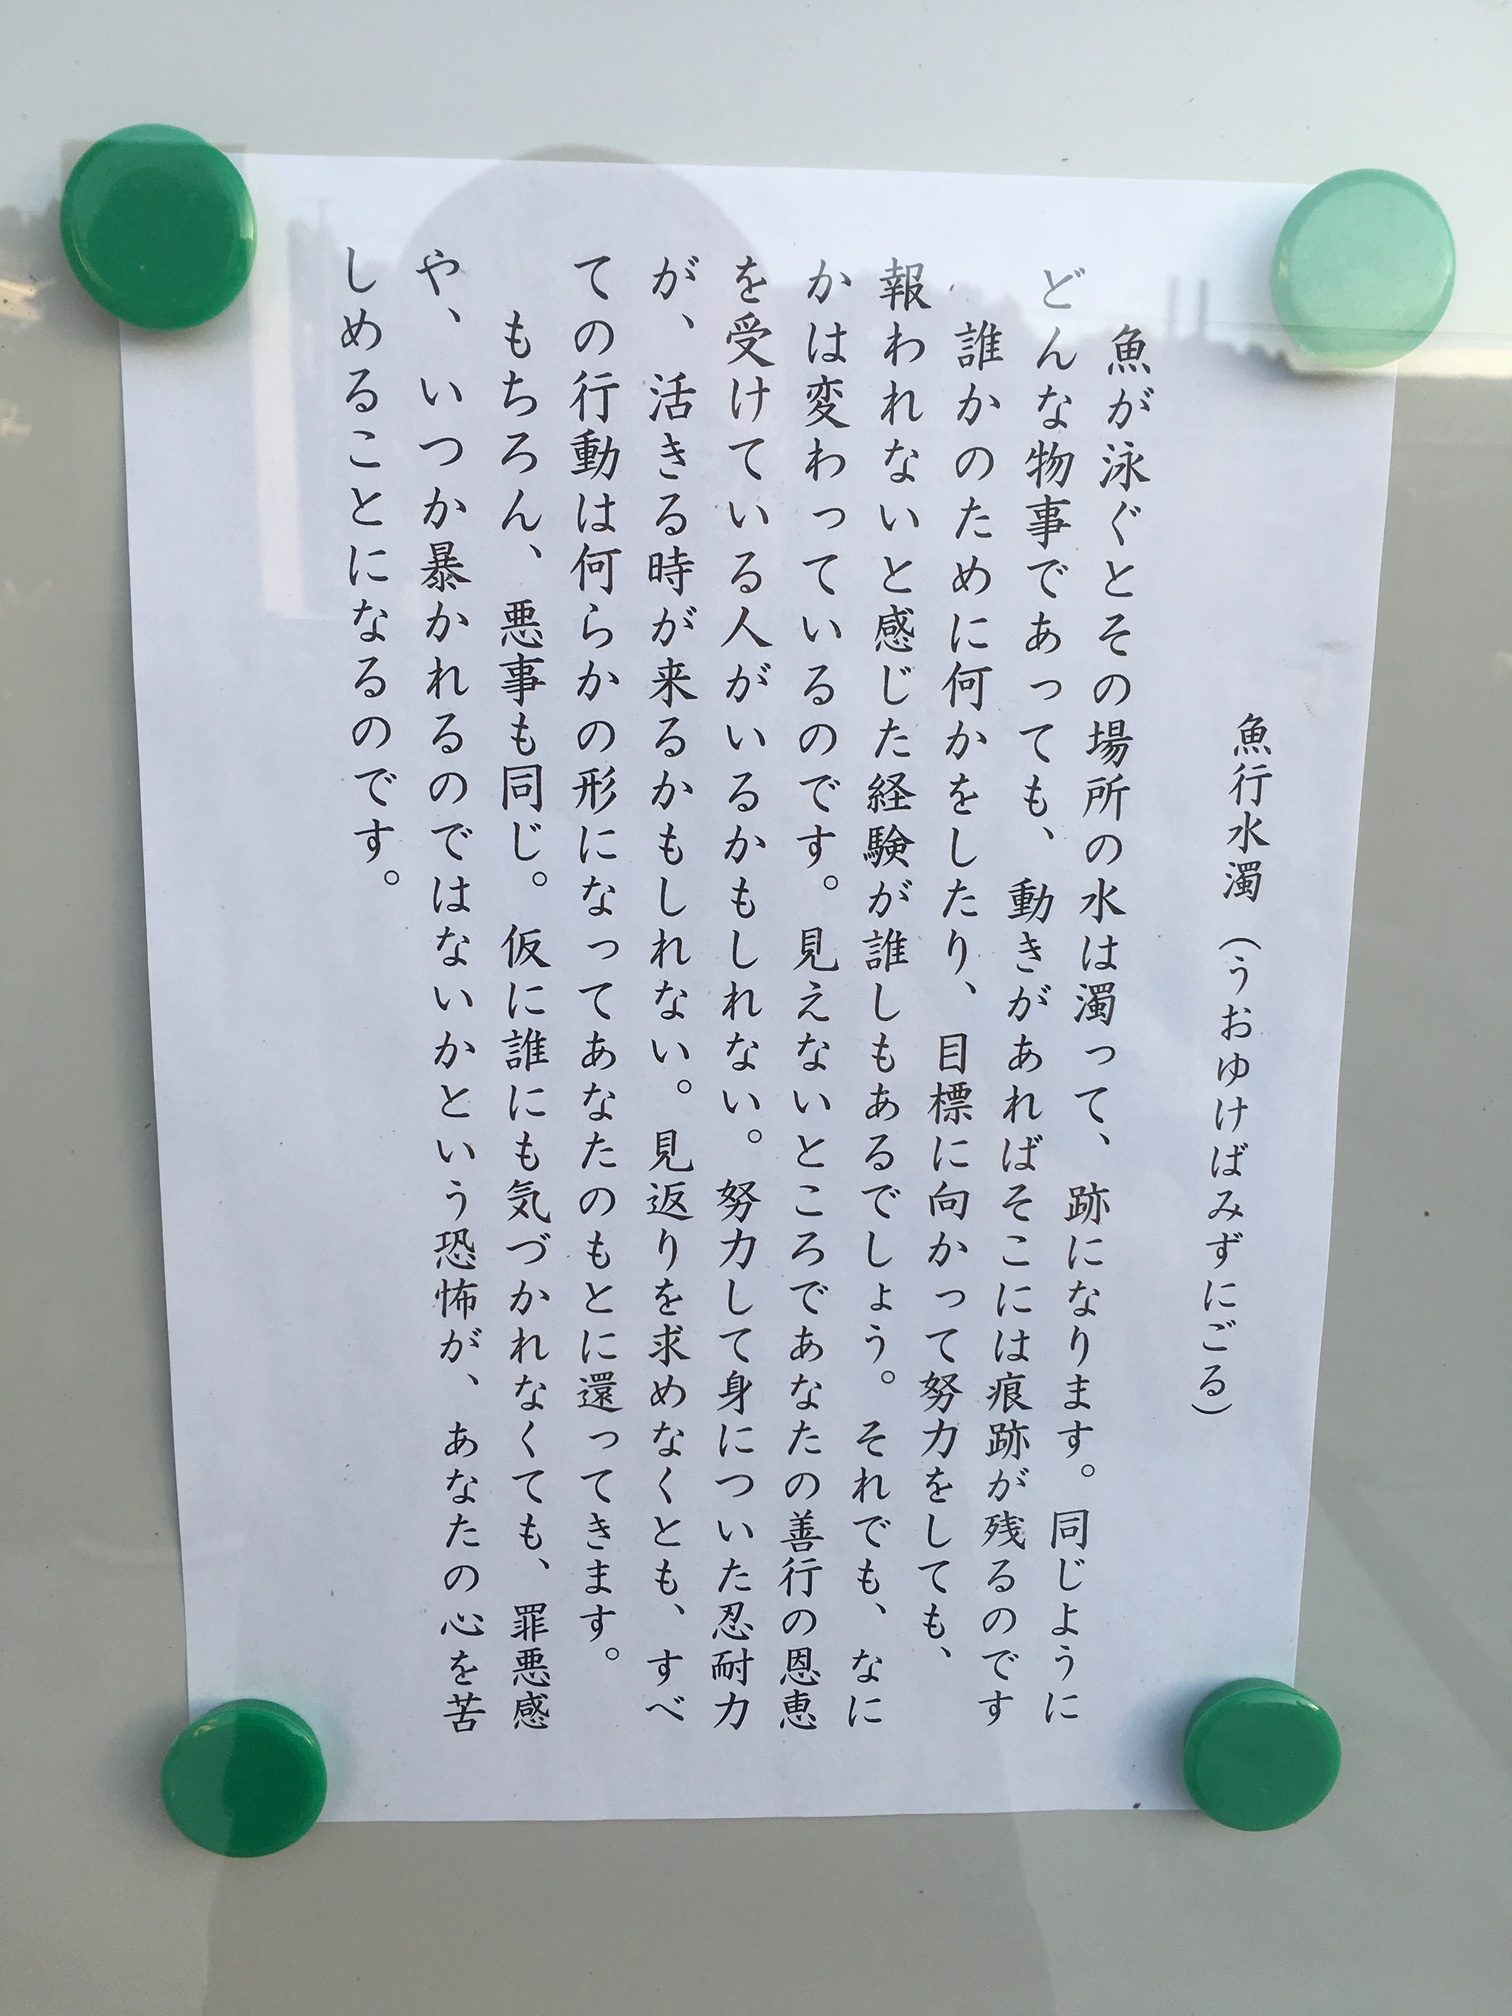 魚行水濁（うおゆけばみずにごる）
魚が泳ぐとその場所の水は濁って、跡になります。同じように
どんな物事であっても、動きがあればそこには痕跡が残るのです
誰かのために何かをしたり、目標に向かって努力をしても、
報われないと感じた経験が誰しもあるでしょう。それでも、なに
かは変わっているのです。見えないところであなたの善行の恩恵
を受けている人がいるかもしれない。努力して身についた忍耐力
が、活きる時が来るかもしれない。見返りを求めなくとも、すべ
ての行動は何らかの形になってあなたのもとに還ってきます。
もちろん、悪事も同じ。仮に誰にも気づかれなくても、罪悪感
や、いつか暴かれるのではないかという恐怖が、あなたの心を苦
しめることになるのです。